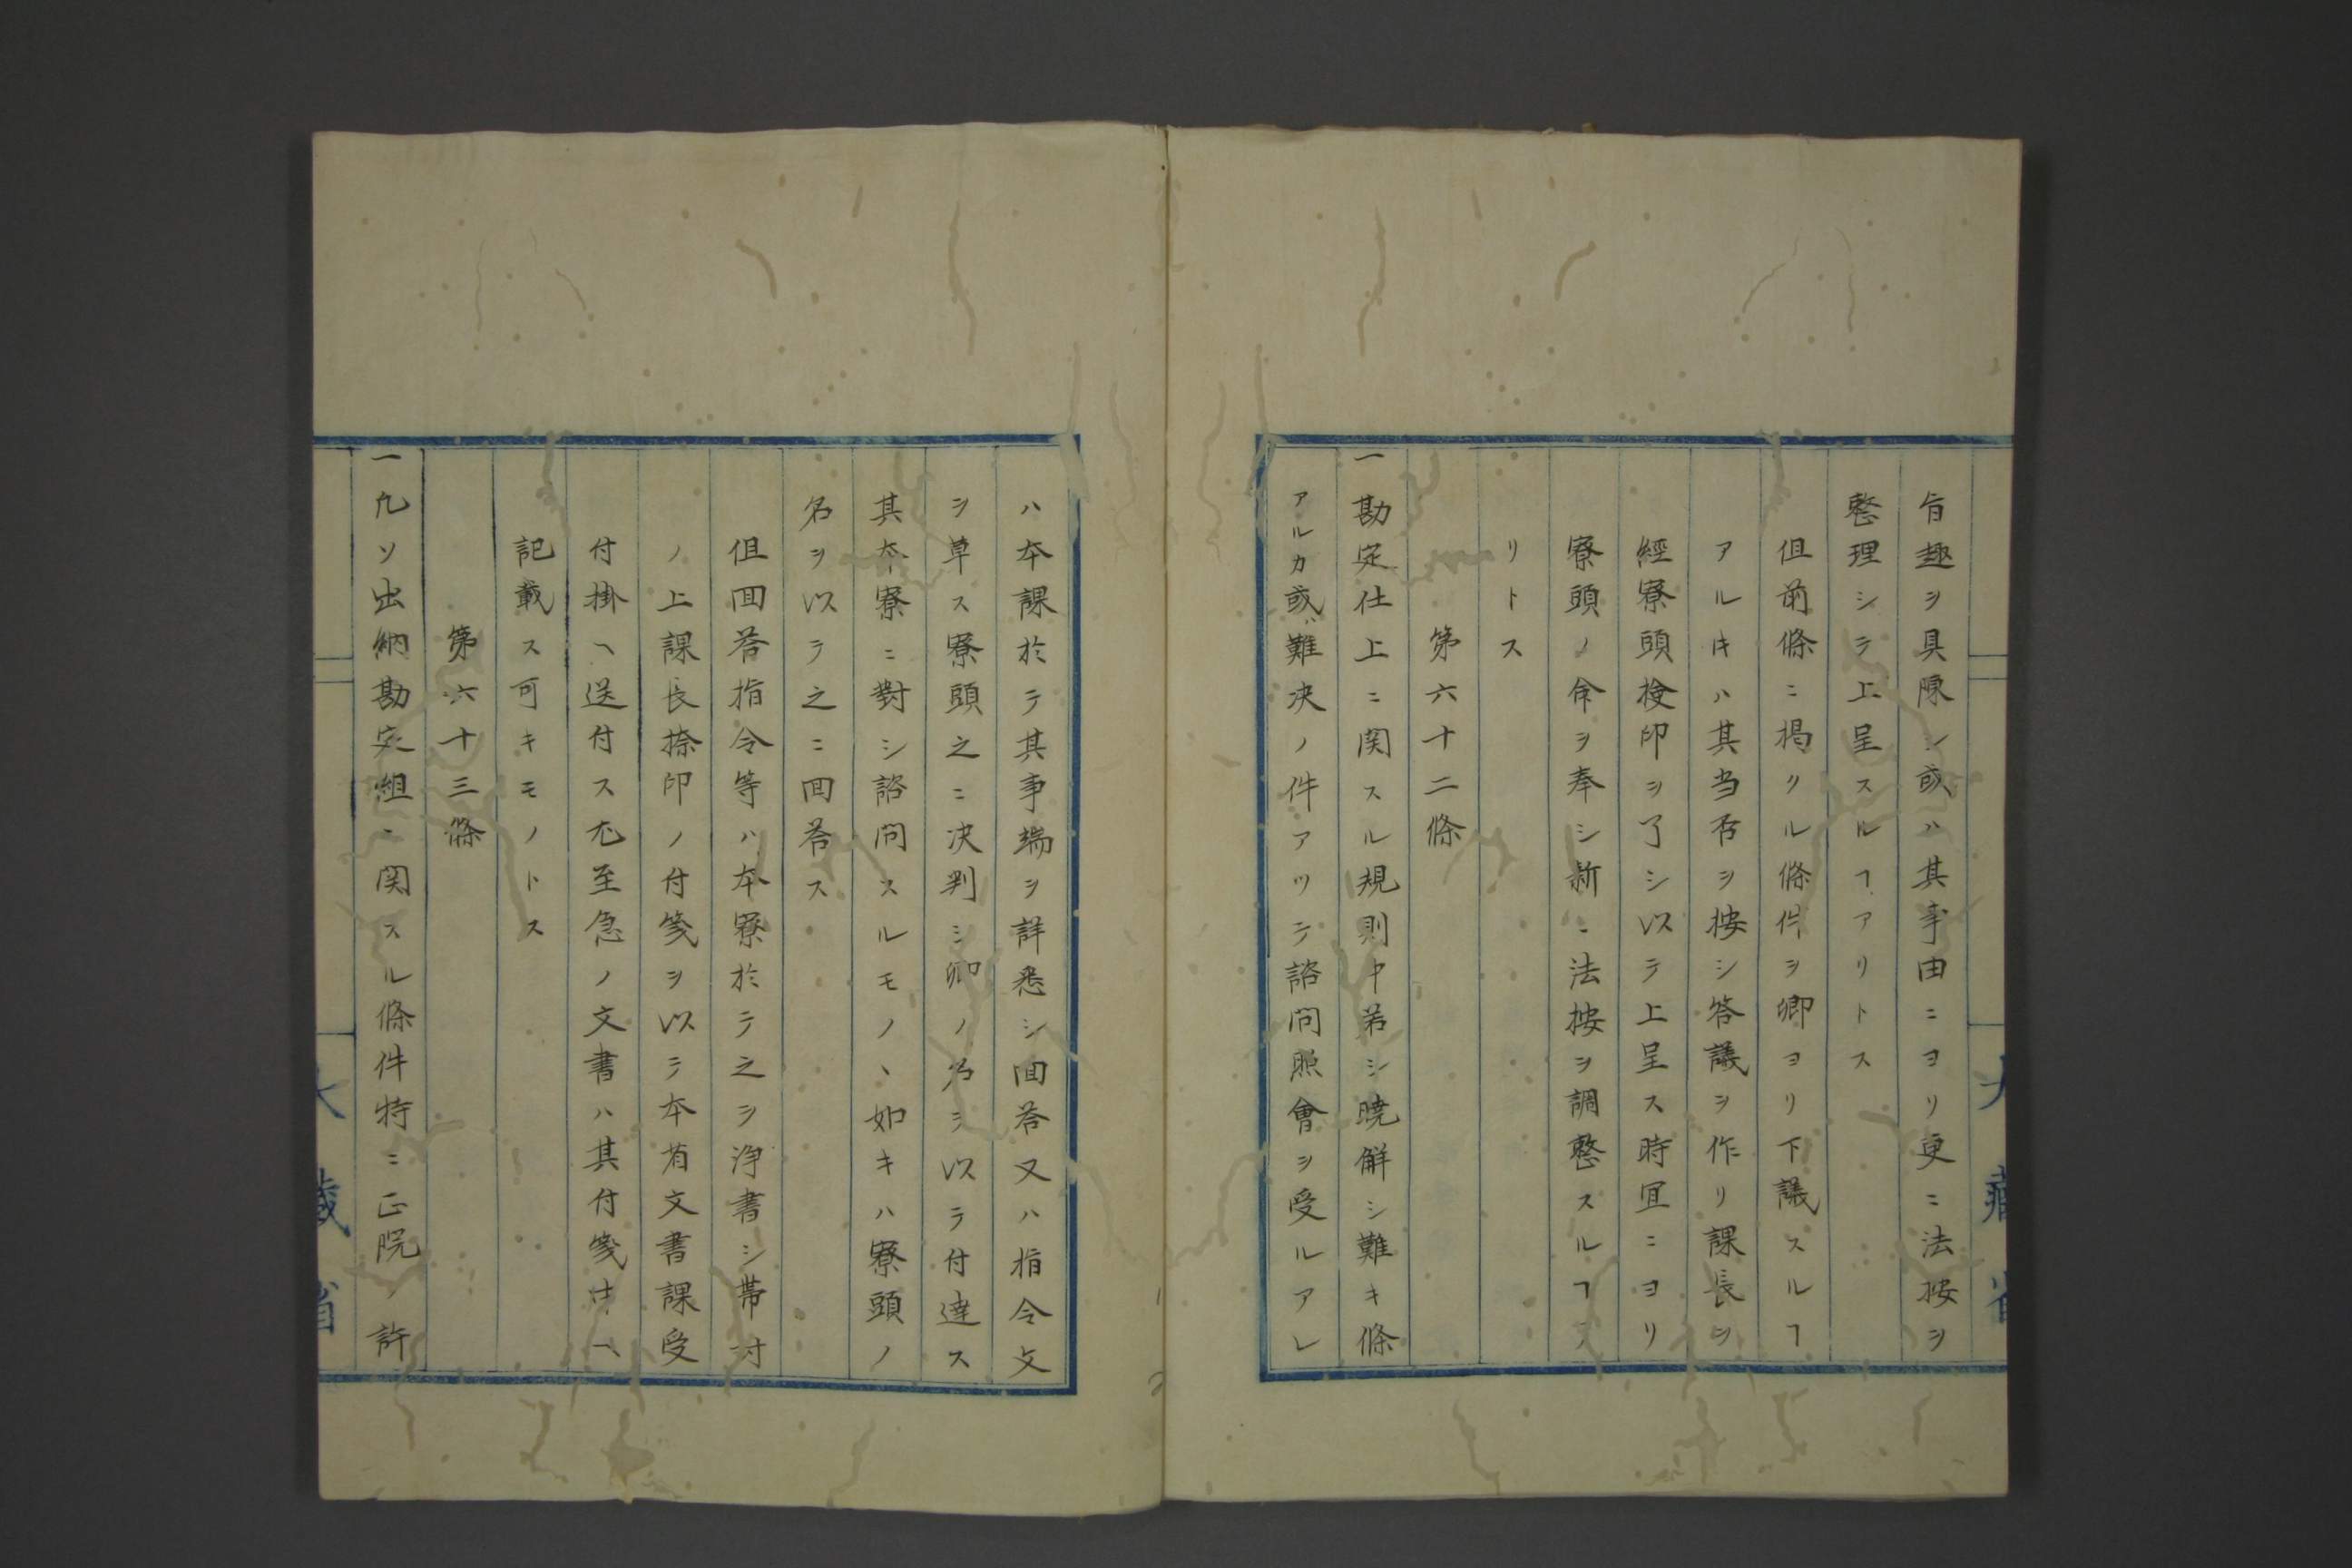 旨趣ヲ具陳シ或ハ其事由ニヨリ更ニ法按ヲ
整理シテ上呈スルヿアリトス
但前條ニ掲クル條件ヲ卿ヨリ下議スルヿ
アルキハ其当否ヲ按シ答議ヲ作リ課長ヲ
經寮頭検印ヲ了シ以テ上呈ス時宜ニヨリ
寮頭ノ命ヲ奉シ新ニ法按ヲ調整スルヿア
リトス
第六十二條
一勘定仕上ニ関スル規則中若シ曉解シ難キ條
アルカ或ハ難决ノ件アツテ諮問照會ヲ受ルアレ
ハ本課於テ其事端ヲ詳悉シ回答又ハ指令文
ヲ草ス寮頭之ニ决判シ卿ノ名ヲ以テ付達ス
其本寮ニ對シ諮問スルモノヽ如キハ寮頭ノ
名ヲ以テ之ニ回答ス
但回答指令等ハ本寮於テ之ヲ浄書シ帯封
ノ上課長捺印ノ付箋ヲ以テ本省文書課受
付掛ヘ送付ス尤至急ノ文書ハ其付箋ヘ
記載ス可キモノトス
第六十三條
一凢ソ出納勘定組ニ関スル條件特ニ正院ノ許
大藏省
大藏省